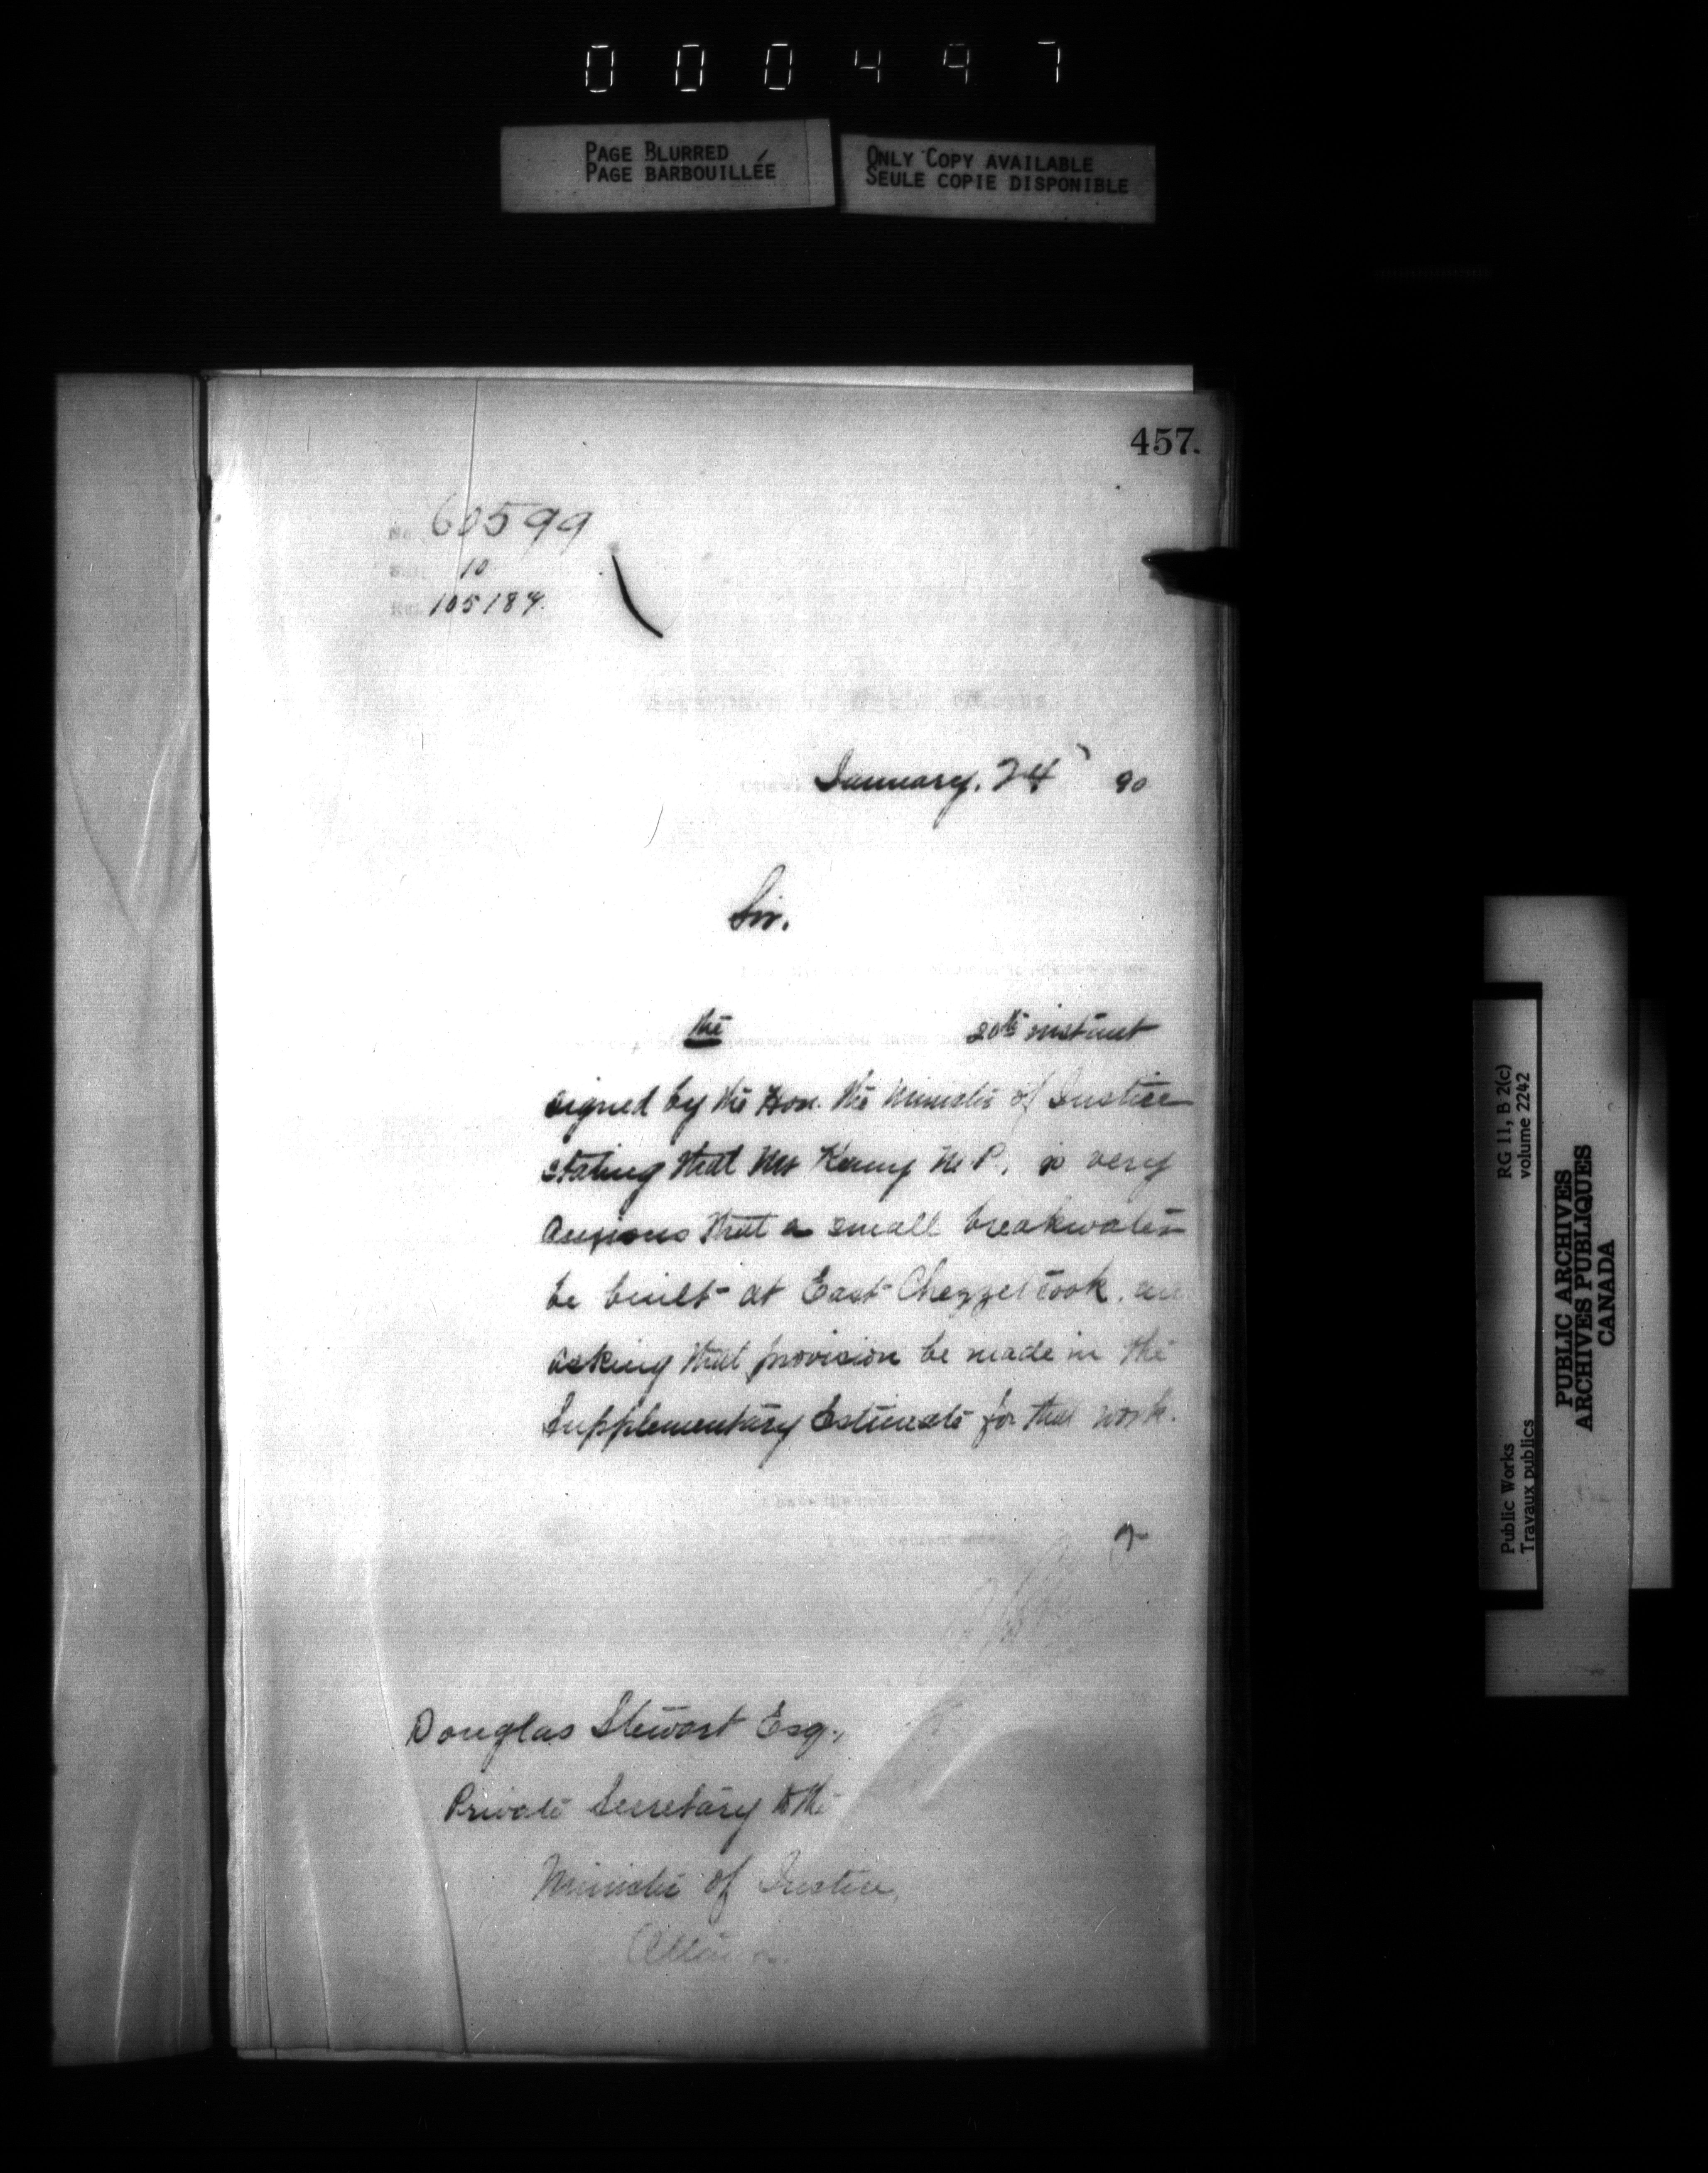 000497
PAGE BLURRED
PAGE BARBOUILLÉE
ONLY COPY AVAILABLE
SEULE COPIE DISPONIBLE
457.
No. 60599
10
105184
January. 24 90
Sir.
the 20th instant
signed by the Hon. the Minister of Justice
stating that Mr Kenny M.P. is very
anxious that a small breakwater
be built at East Chezzetcook.
asking that provision be made in the
Supplementary Estimate for that work.
Douglas Stewart Esq.,
Private Secretary to the
Minister of Justice,
Ottawa
Public Works
Travaux publics
RG 11, B 2(c)
volume 2242
PUBLIC ARCHIVES
ARCHIVES PUBLIQUES
CANADA